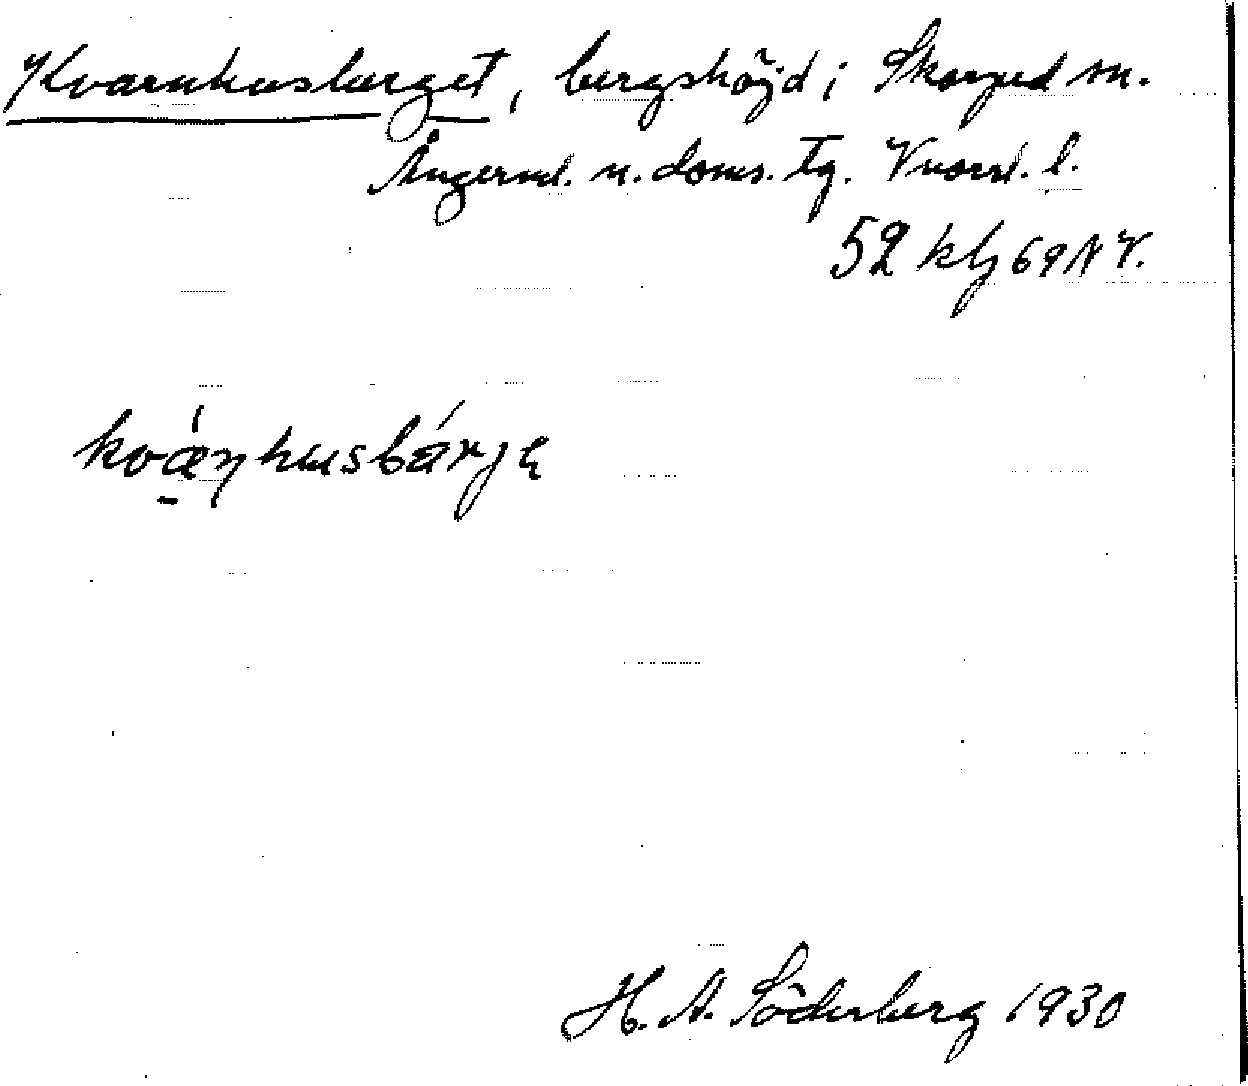 Kvarnhusberget, bergshöjd i Skorped sn.
Ångerml. n. doms. tg. Vnorrl. l.
52 klj 69 NV.
kvæṇhusbárjɛ
H. A. Söderberg 1930